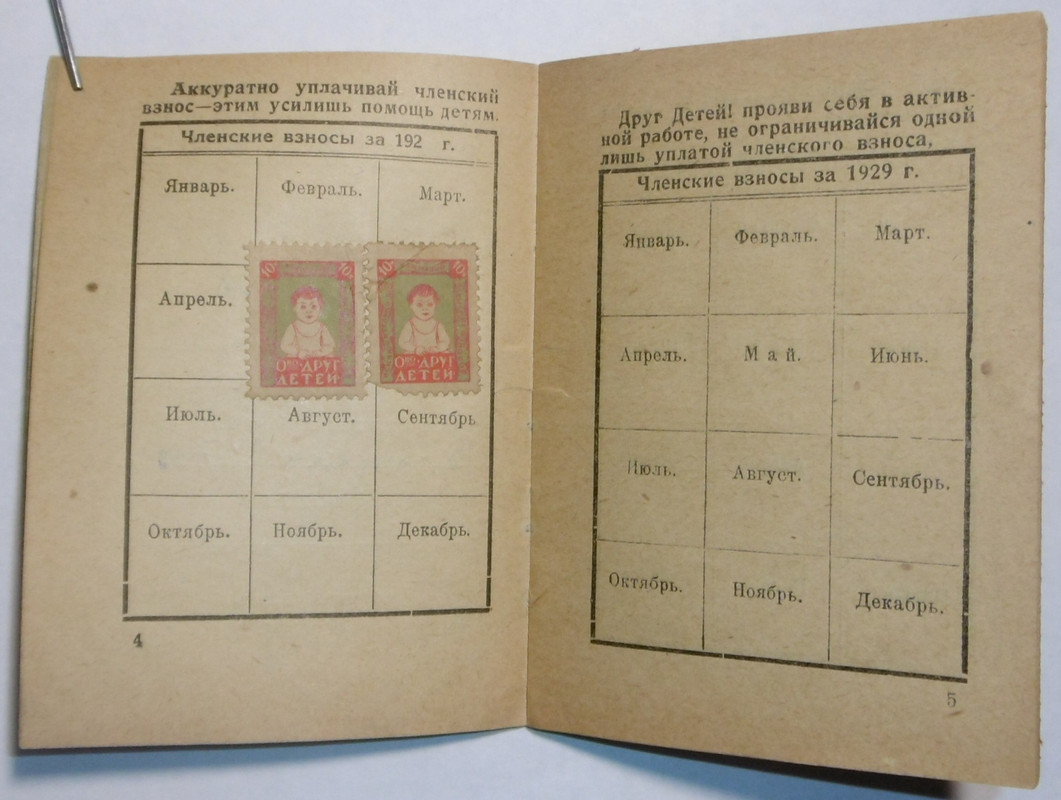 Аккуратно уплачивай членский
взнос—этим усилишь помощь детям.
Членские взносы за 192 г.
Январь. Февраль. Март.
Апрель.
10 10 10 10
О-во ДРУГ
ДЕТЕЙ
О-во ДРУГ
ДЕТЕЙ
Июль. Август. Сентябрь
Октябрь. Ноябрь. Декабрь.
4
Друг Детей! прояви себя в актив-
ной работе, не ограничивайся одной
лишь уплатой членского взноса,
Членские взносы за 1929 г.
Январь. Февраль. Март.
Апрель. Май. Июнь.
Июль. Август. Сентябрь.
Октябрь. Ноябрь. Декабрь.
5